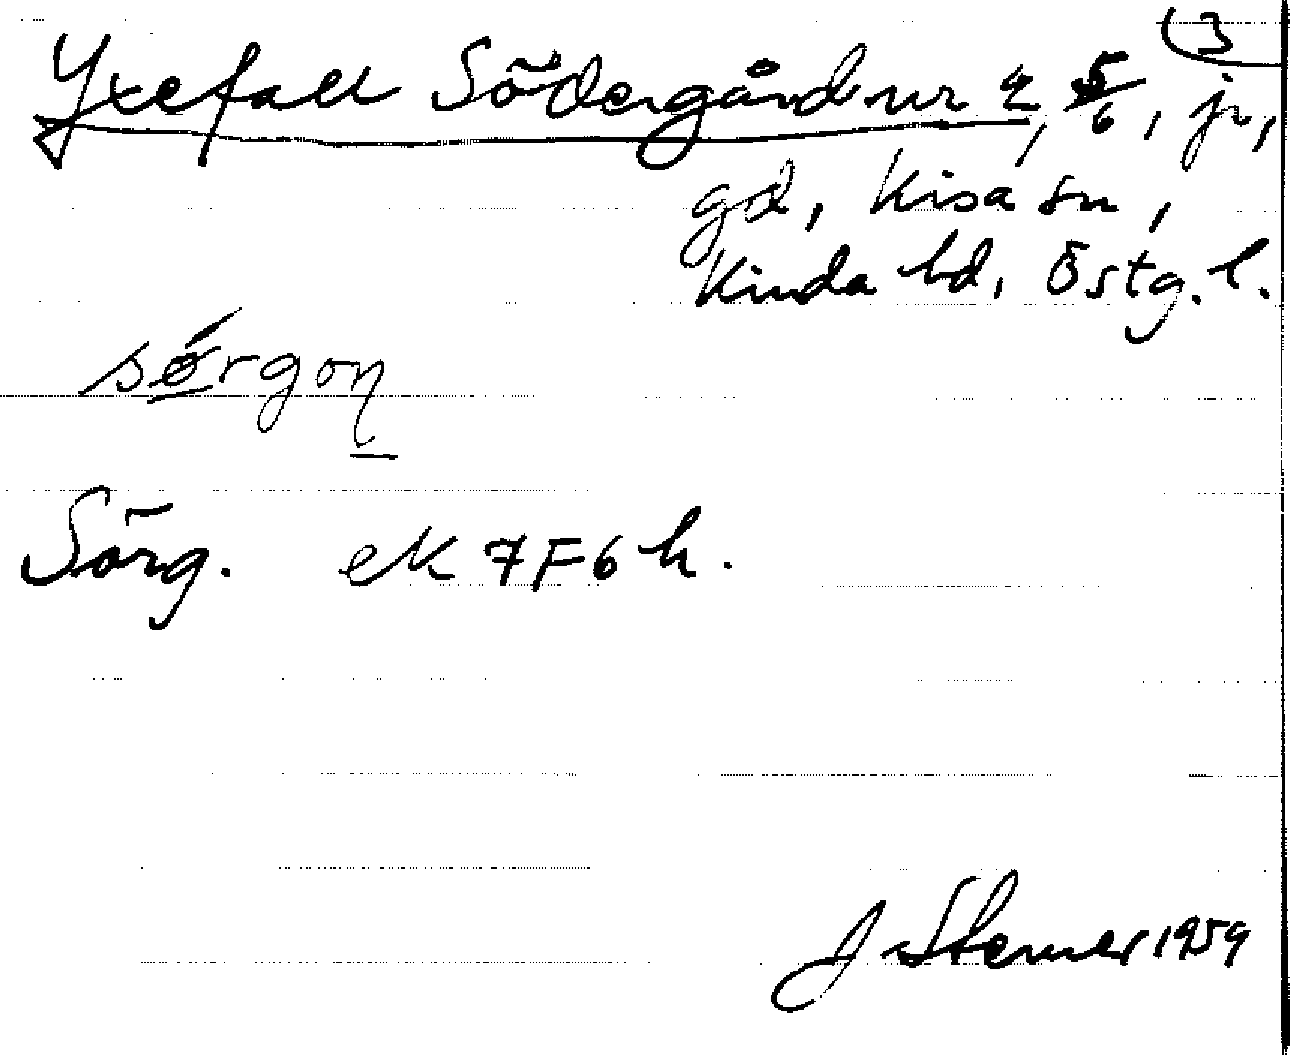 (3
Yxefall Södergård nr 2, 5/6, jr,
gd, Kisa sn,
Kinda hd, Östg. l.
sørgon
Sörg. ek 7F6h.
J Sterner 1959